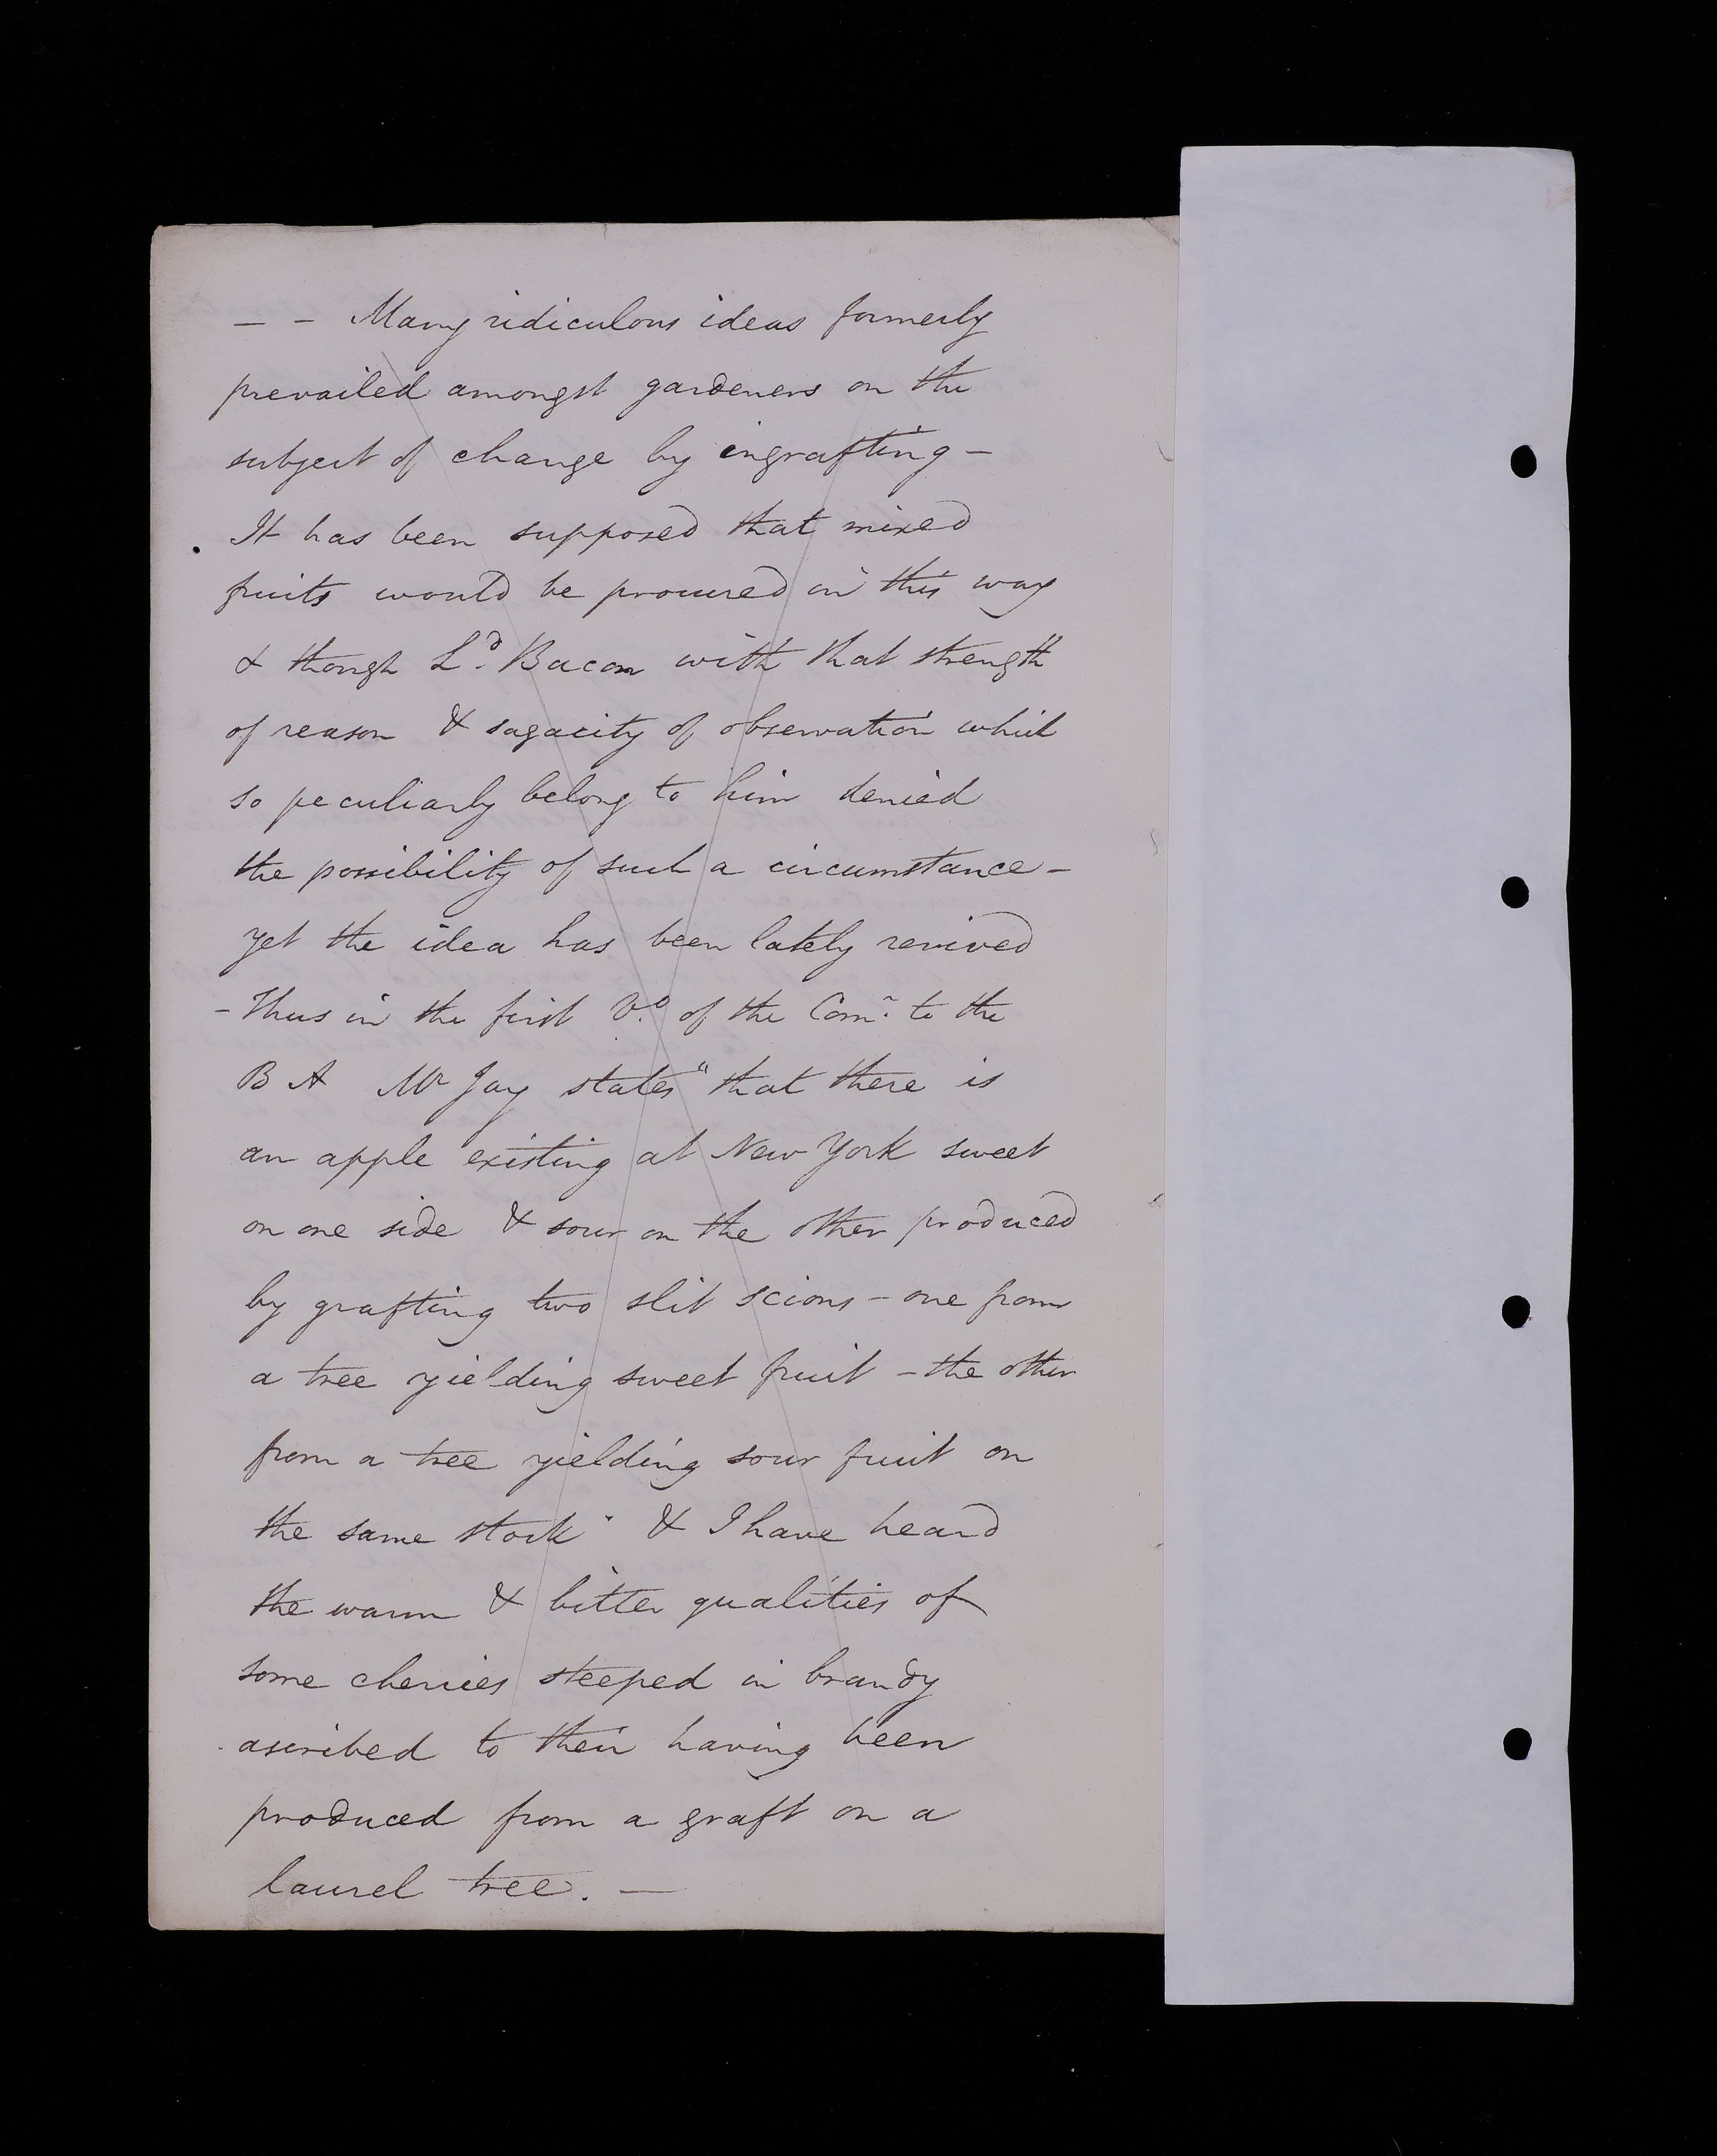 — — Many ridiculous ideas formerly
prevailed amongst gardeners on the
subject of change by ingrafting —
It has been supposed that mixed
fruits would be procured in this way
& though Ld. Bacon with that strength
of reason & sagacity of observation which
so peculiarly belong to him denied
the possibility of such a circumstance —
yet the idea has been lately revived
— Thus in the first Vo. of the Com.ns to the
B A Mr Jay states "that there is
an apple existing at New York sweet
on one side & sour on the other produced
by grafting two slit scions — one from
a tree yielding sweet fruit — the other
from a tree yielding sour fruit on
the same stock" & I have heard
the warm & bitter qualities of
some cherries steeped in brandy
ascribed to their having been
produced from a graft on a
laurel tree. —